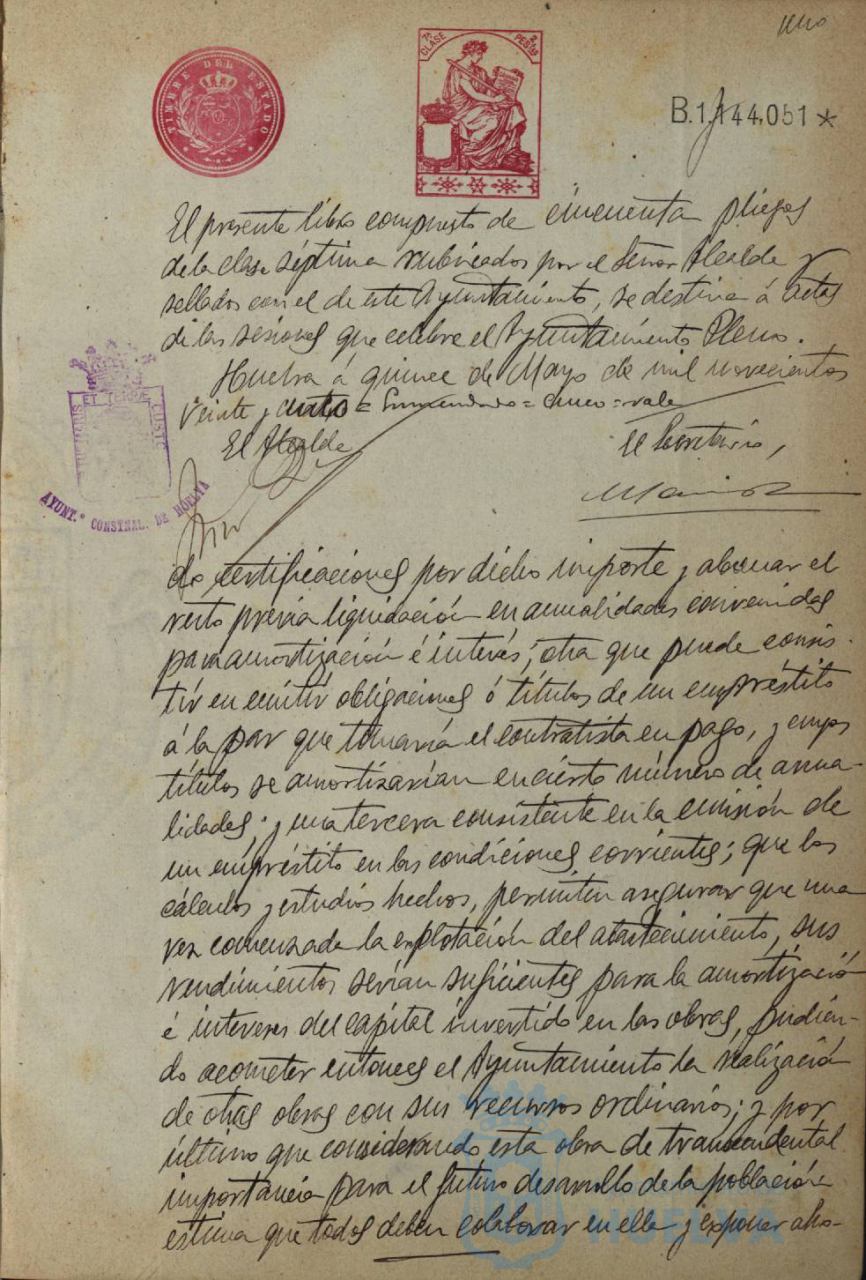 TIMBRE DEL ESTADO
7ª CLASE 2 PESTAS
B.1,144,051*
El presente libro compuesto de cincuenta pliegos
de la clase séptima rubricados por el Señor Alcalde y
sellados con el de este Ayuntamiento, se destina á actas
de las sesiones que celebre el Ayuntamiento Pleno.
Huelva á quince de Mayo de mil novecientos
veinte y cinco = Enmendado = cinco = vale
El Alcalde
El Secretario,
ET TERRE CUSTO
AYUNT.º CONSTNAL. DE HUELVA
do certificaciones por dicho importe y abonar el
resto previa liquidación en anualidades convenidas
para amortización é interés; otra que puede consis-
tir en emitir obligaciones ó títulos de un empréstito
á la par que tomaría el contratista en pago, y cuyos
títulos se amortizarían en cierto número de anua-
lidades; y una tercera consistente en la emisión de
un empréstito en las condiciones corrientes; que los
cálculos y estudios hechos, permiten asegurar que una
vez comenzada la explotación del abastecimiento, sus
rendimientos serían suficientes para la amortización
é intereses del capital invertido en las obras, pudien-
do acometer entonces el Ayuntamiento la realización
de otras obras con sus recursos ordinarios; y por
último que considerando esta obra de transcendental
importancia para el futuro desarrollo de la población
estima que todos deben colaborar en ella y exponer aho-
HUELVA